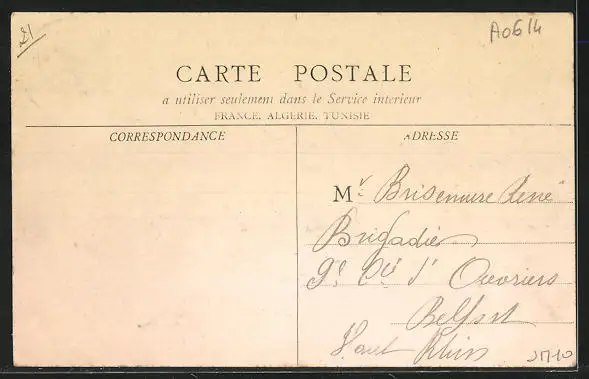 21
A0614
CARTE POSTALE
a utiliser seulement dans le Service interieur
FRANCE, ALGERIE, TUNISIE
CORRESPONDANCE
ADRESSE
Mr Brisemure René
Brigadier
9e Cie d' Ouvriers
Belfort
Haut Rhin